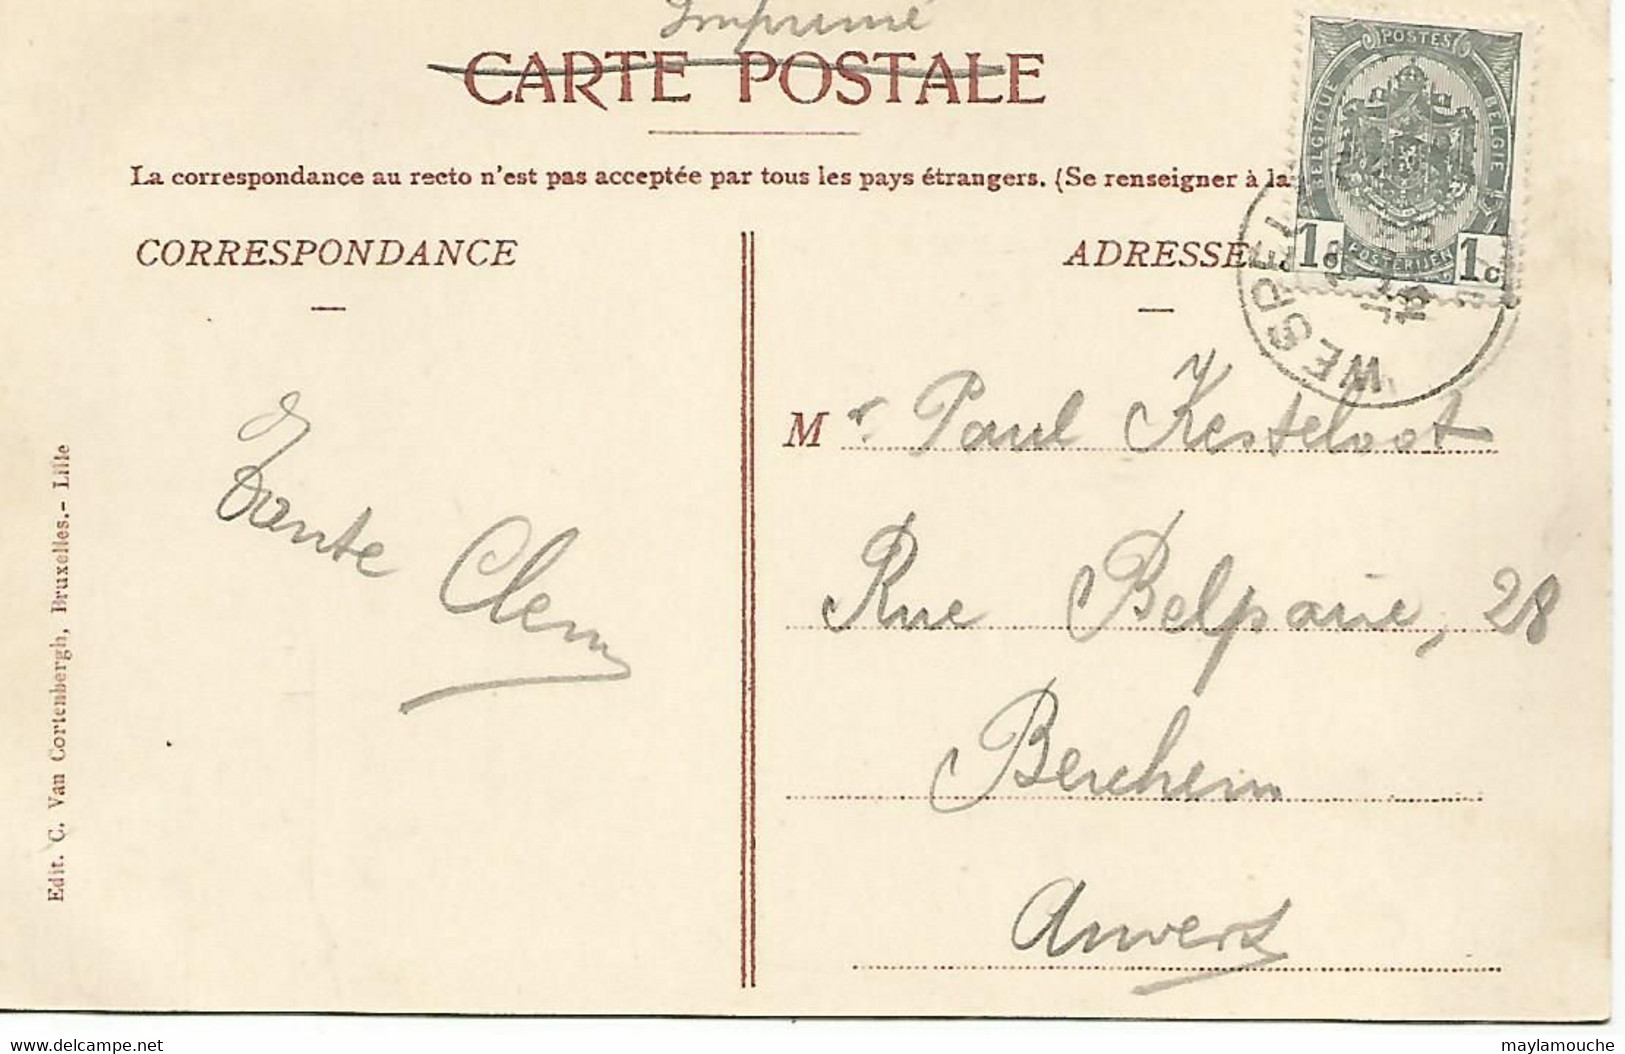 Imprimé
CARTE POSTALE
La correspondance au recto n'est pas acceptée par tous les pays étrangers. (Se renseigner à la
CORRESPONDANCE
ADRESSE
POSTES
BELGIQUE
BELGIE
POSTERIJEN
1c
1c
WESPEL
Mr Paul Kesteloot
Rue Belpaire, 28
Berchem
Anvers
Tante Clem
Edit. C. Van Cortenbergh, Bruxelles.- Lille
www.delcampe.net
maylamouche